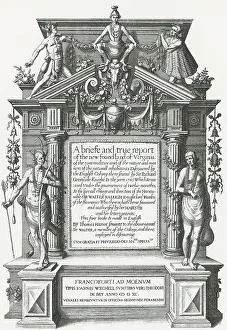 A briefe and true report
of the new found land of Virginia.
of the commodities and of the nature and man
ners of the naturall inhabitants. Discouered by
the English Colony there seated by Sir Richard
Greinuile Knight In the yeere 1585. Which rema
ined Vnder the gouernement of twelue monethes,
At the speciall charge and direction of the Honou
rable SIR WALTER RALEIGH Knight lord Warden
of the stanneries Who therein hath beene fauoured
and authorised by her MAIESTIE
and her letters patents:
This fore booke Is made in English
By Thomas Hariot seruant to the abouenamed
Sir WALTER, a member of the Colony, and there
imployed in discouering
CVM GRATIA ET PRIVILEGIO CÆS. MATIS SPECIALI
FRANCOFORTI AD MOENVM
TYPIS IOANNIS WECHELI, SVMTIBVS VERO THEODORI
DE BRY ANNO CIƆ IƆ XC.
VENALES REPERIVNTVR IN OFFICINA SIGISMVNDI FEIRABENDII